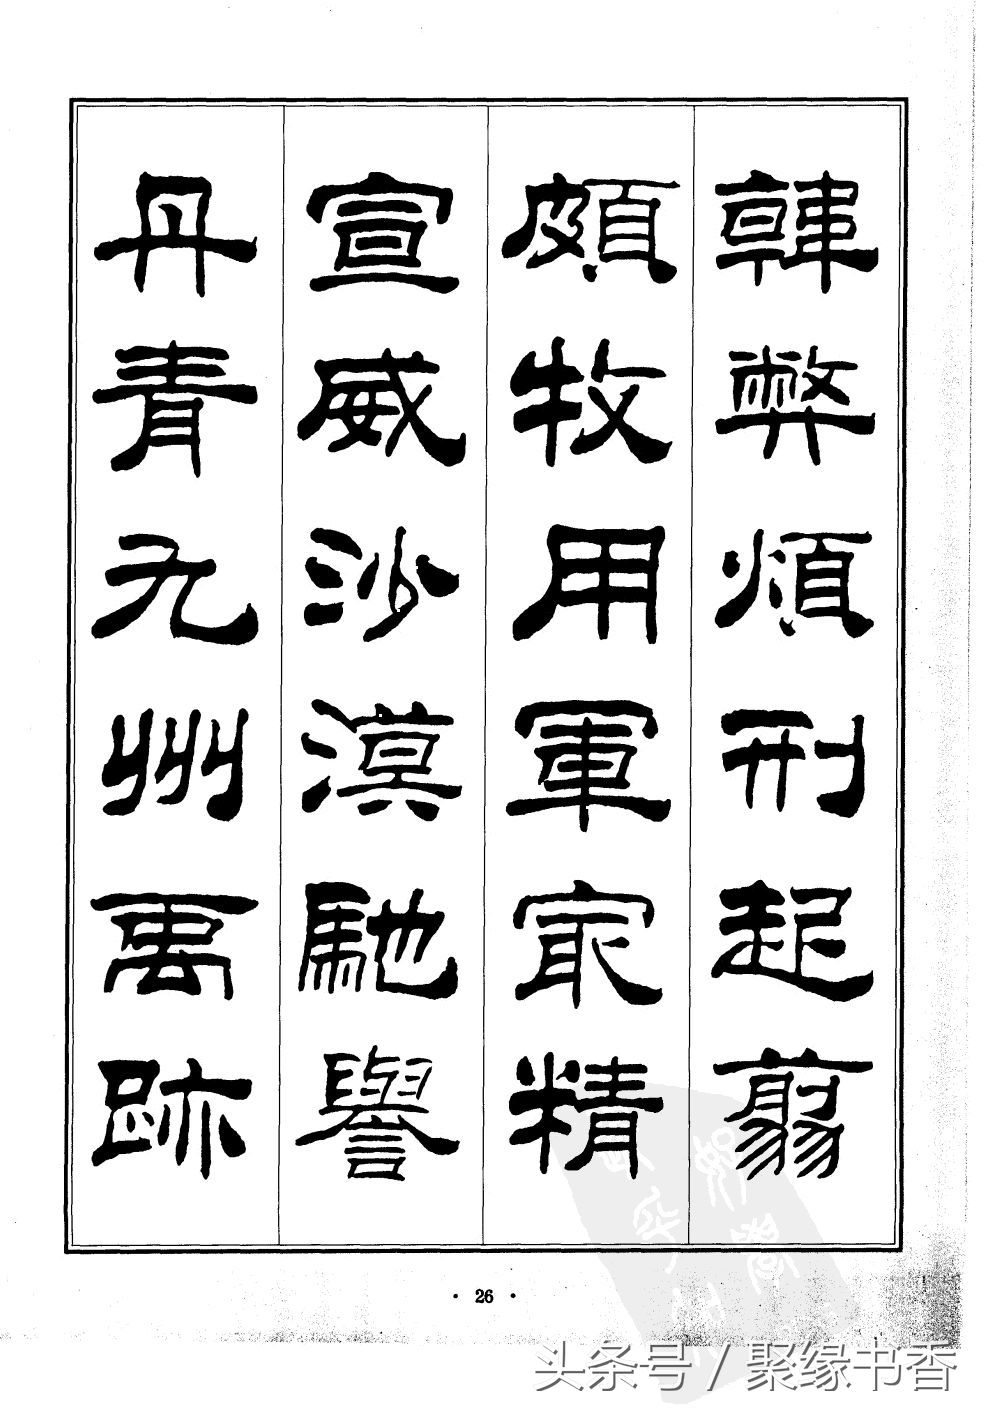 韓弊煩刑起翦
頗牧用軍最精
宣威沙漠馳譽
丹青九州禹跡
· 26 ·
头条号 / 聚缘书香